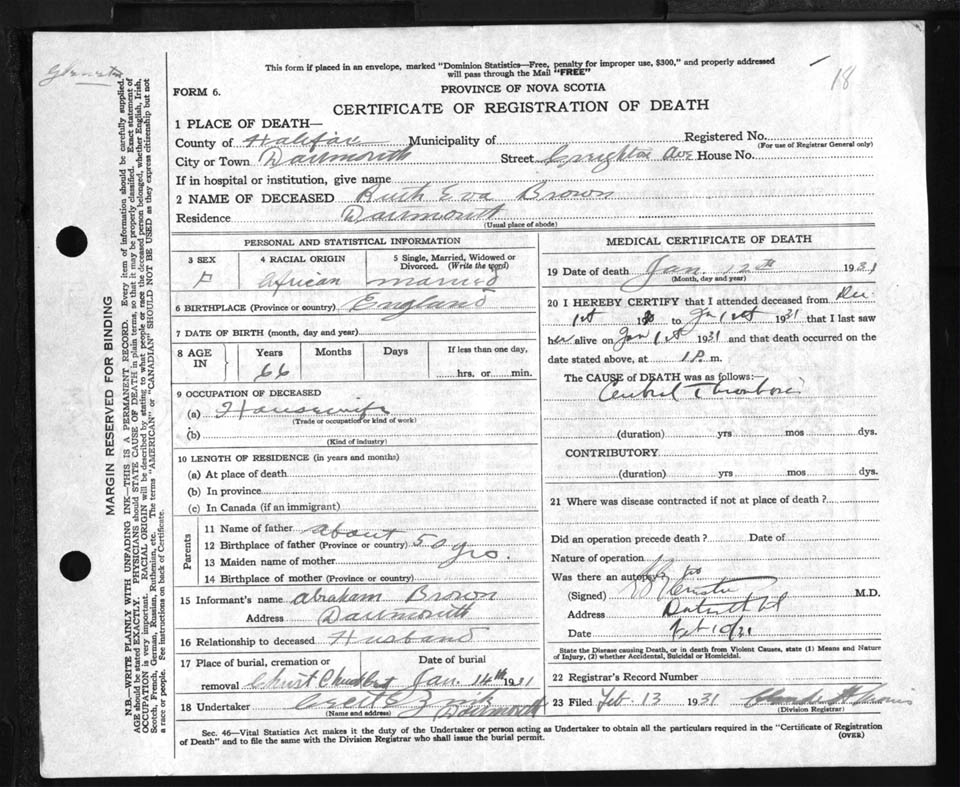 18
This form if placed in an envelope, marked "Dominion Statistics—Free, penalty for improper use, $300," and properly addressed
will pass through the Mail "FREE"
FORM 6.
PROVINCE OF NOVA SCOTIA
CERTIFICATE OF REGISTRATION OF DEATH
1 PLACE OF DEATH—
County of Halifax Municipality of Registered No.
(For use of Registrar General only)
City or Town Dartmouth Street Crichton Ave House No.
If in hospital or institution, give name
2 NAME OF DECEASED Ruth Eva Brown
Residence Dartmouth
(Usual place of abode)
PERSONAL AND STATISTICAL INFORMATION
3 SEX 4 RACIAL ORIGIN 5 Single, Married, Widowed or
Divorced. (Write the word)
F African married
6 BIRTHPLACE (Province or country) England
7 DATE OF BIRTH (month, day and year)
8 AGE IN Years Months Days If less than one day,
66 hrs. or min.
9 OCCUPATION OF DECEASED
(a) Housewife
(Trade or occupation or kind of work)
(b)
(Kind of industry)
10 LENGTH OF RESIDENCE (in years and months)
(a) At place of death
(b) In province
(c) In Canada (if an immigrant)
Parents
11 Name of father about
12 Birthplace of father (Province or country) 50 yrs.
13 Maiden name of mother
14 Birthplace of mother (Province or country)
15 Informant's name Abraham Brown
Address Dartmouth
16 Relationship to deceased Husband
17 Place of burial, cremation or Date of burial
removal Christ Church Jan. 14th 1931
18 Undertaker Dartmouth
(Name and address)
MEDICAL CERTIFICATE OF DEATH
19 Date of death Jan. 12th 1931
(Month, day and year)
20 I HEREBY CERTIFY that I attended deceased from Dec
1st 19 to Jan 1st 1931 that I last saw
her alive on Jan 1st 1931 and that death occurred on the
date stated above, at 1 P. m.
The CAUSE of DEATH was as follows:
Cerebral Thrombosis
(duration) yrs mos dys.
CONTRIBUTORY
(duration) yrs. mos. dys.
21 Where was disease contracted if not at place of death?
Did an operation precede death? Date of
Nature of operation
Was there an autopsy? no
(Signed) M.D.
Address
Date
State the Disease causing Death, or in death from Violent Causes, state (1) Means and Nature
of Injury, (2) whether Accidental, Suicidal or Homicidal.
22 Registrar's Record Number
23 Filed Feb 13 1931
(Division Registrar)
Sec. 46—Vital Statistics Act makes it the duty of the Undertaker or person acting as Undertaker to obtain all the particulars required in the "Certificate of Registration
of Death" and to file the same with the Division Registrar who shall issue the burial permit. (OVER)
MARGIN RESERVED FOR BINDING
N.B.—WRITE PLAINLY WITH UNFADING INK—THIS IS A PERMANENT RECORD. Every item of information should be carefully supplied.
AGE should be stated EXACTLY. PHYSICIANS should STATE CAUSE OF DEATH in plain terms, so that it may be properly classified. Exact statement of
OCCUPATION is very important. RACIAL ORIGIN will be described by stating to what people or race the deceased person belonged, whether English, Irish,
Scotch, French, German, Russian, Ruthenian, etc. The terms "AMERICAN" or "CANADIAN" SHOULD NOT BE USED as they express citizenship but not
a race or people. See instructions on back of Certificate.